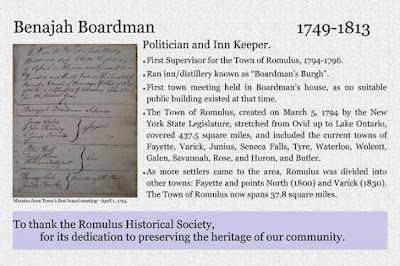 Benajah Boardman 1749-1813
Politician and Inn Keeper.
• First Supervisor for the Town of Romulus, 1794-1796.
• Ran inn/distillery known as “Boardman’s Burgh”.
• First town meeting held in Boardman’s house, as no suitable
public building existed at that time.
• The Town of Romulus, created on March 5, 1794 by the New
York State Legislature, stretched from Ovid up to Lake Ontario,
covered 437.5 square miles, and included the current towns of
Fayette, Varick, Junius, Seneca Falls, Tyre, Waterloo, Wolcott,
Galen, Savannah, Rose, and Huron, and Butler.
• As more settlers came to the area, Romulus was divided into
other towns: Fayette and points North (1800) and Varick (1830).
The Town of Romulus now spans 37.8 square miles.
Minutes from Town’s first board meeting—April 1, 1794.
To thank the Romulus Historical Society,
for its dedication to preserving the heritage of our community.